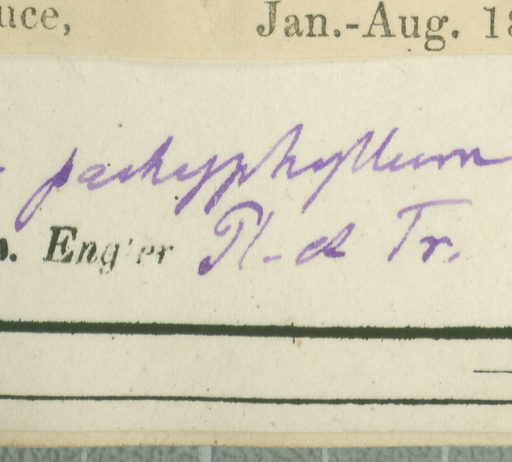 uce, Jan.-Aug. 18
pachyphyllum
Engler Pl. et Tr.